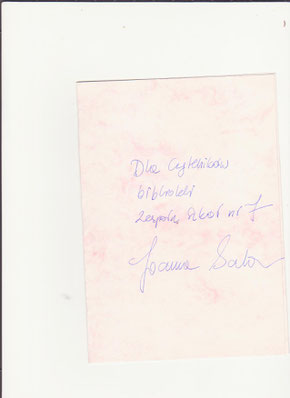 Dla Czytelników
biblioteki
Zespołu Szkół nr 7
Joanna